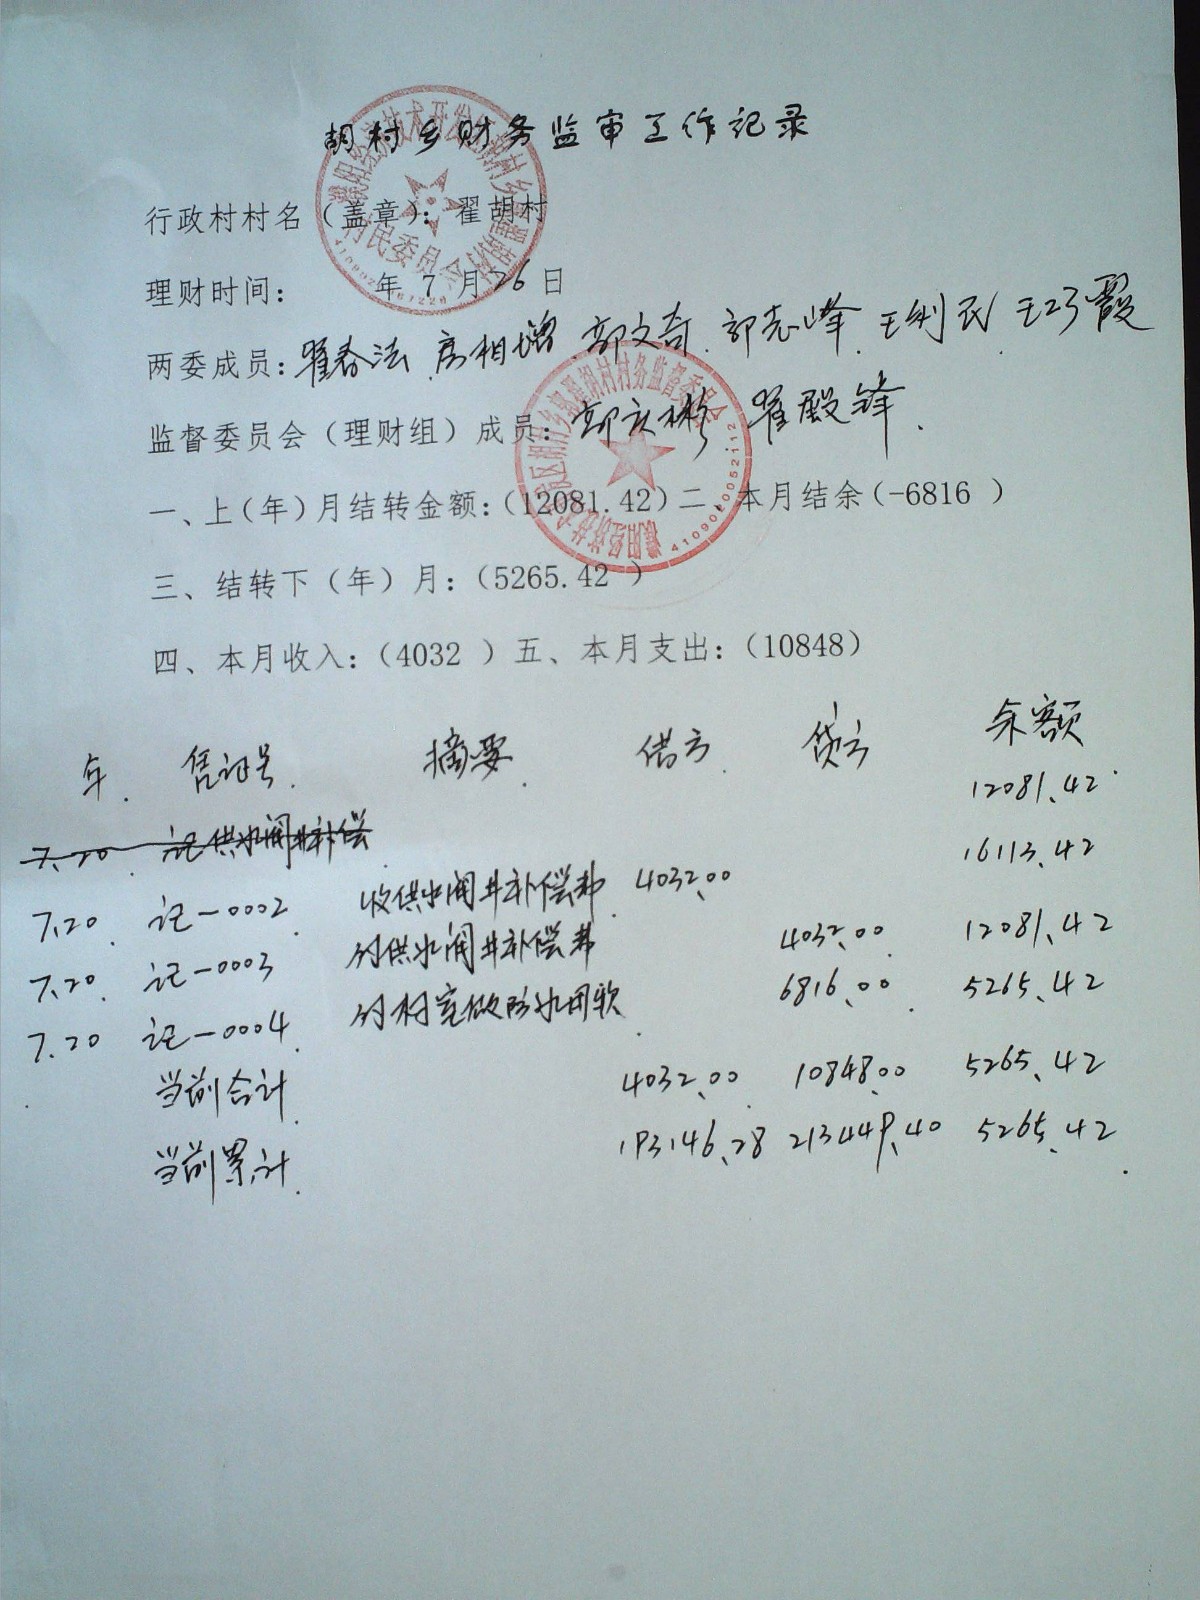 胡村乡财务监审工作记录
行政村村名（盖章）：翟胡村
理财时间： 年 7 月 26 日
两委成员：翟春法 房相增 郭文奇 郭志峰 王利民 王巧霞
监督委员会（理财组）成员：郭庆彬 翟殿锋
一、上(年)月结转金额：(12081.42)二、本月结余(-6816 )
三、结转下（年）月：(5265.42 )
四、本月收入：(4032 ) 五、本月支出：(10848)
年 凭证号 摘要 借方 贷方 余额
12081.42
7.20 记供水阀井补偿
7.20 记-0002 收供水阀井补偿费 4032.00 16113.42
7.20 记-0003 付供水阀井补偿费 4032.00 12081.42
7.20 记-0004 付村室做防水用款 6816.00 5265.42
当前合计 4032.00 10848.00 5265.42
当前累计 193146.28 213449.40 5265.42